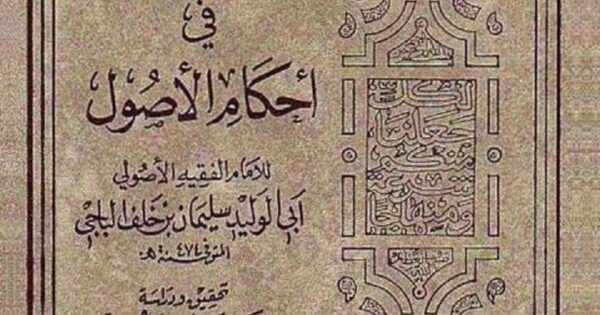 في
أحكام الأصول
للإمام الفقيه الأصولي
أبي الوليد سليمان بن خلف الباجي
المتوفى سنة ٤٧٤ هـ
تحقيق ودراسة
لكل
جعلنا
منكم
شرعة
ومنهاجا
صدق الله العظيم